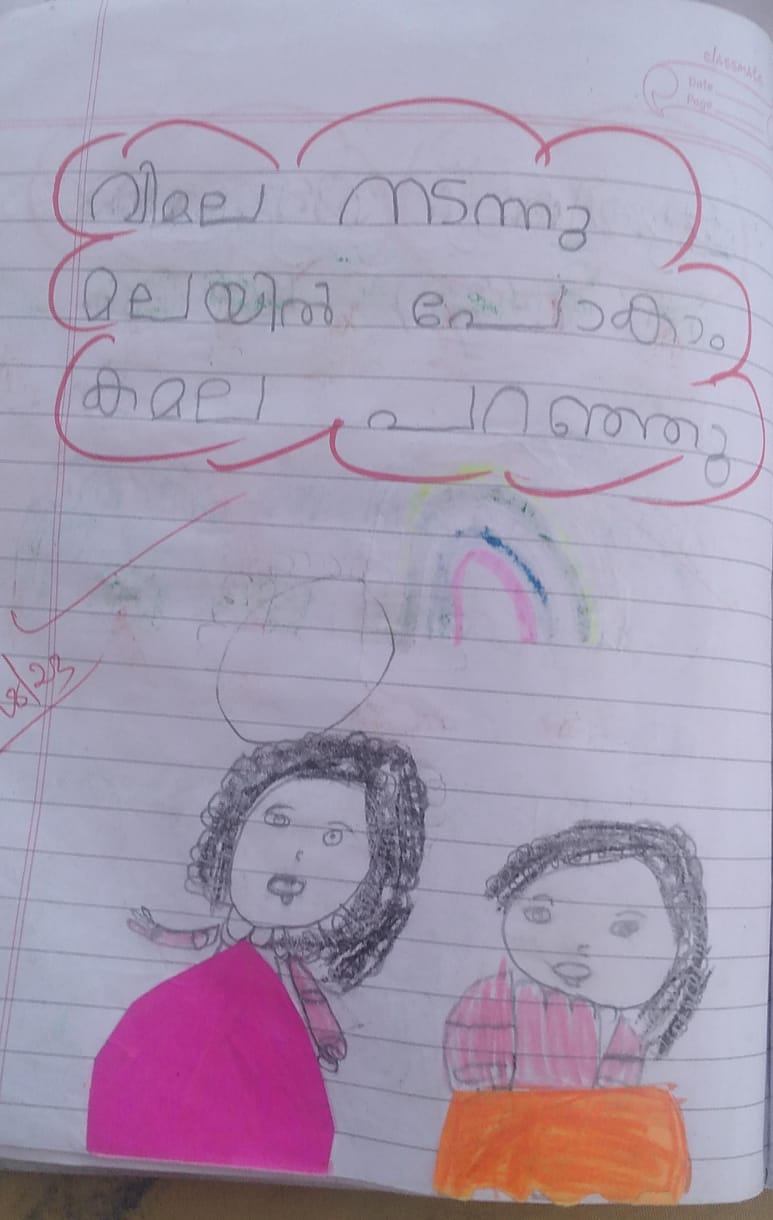 classmate
Date
Page
വിമല നടന്നു
മലയിൽ പോകാം
കമല പറഞ്ഞു
8/23